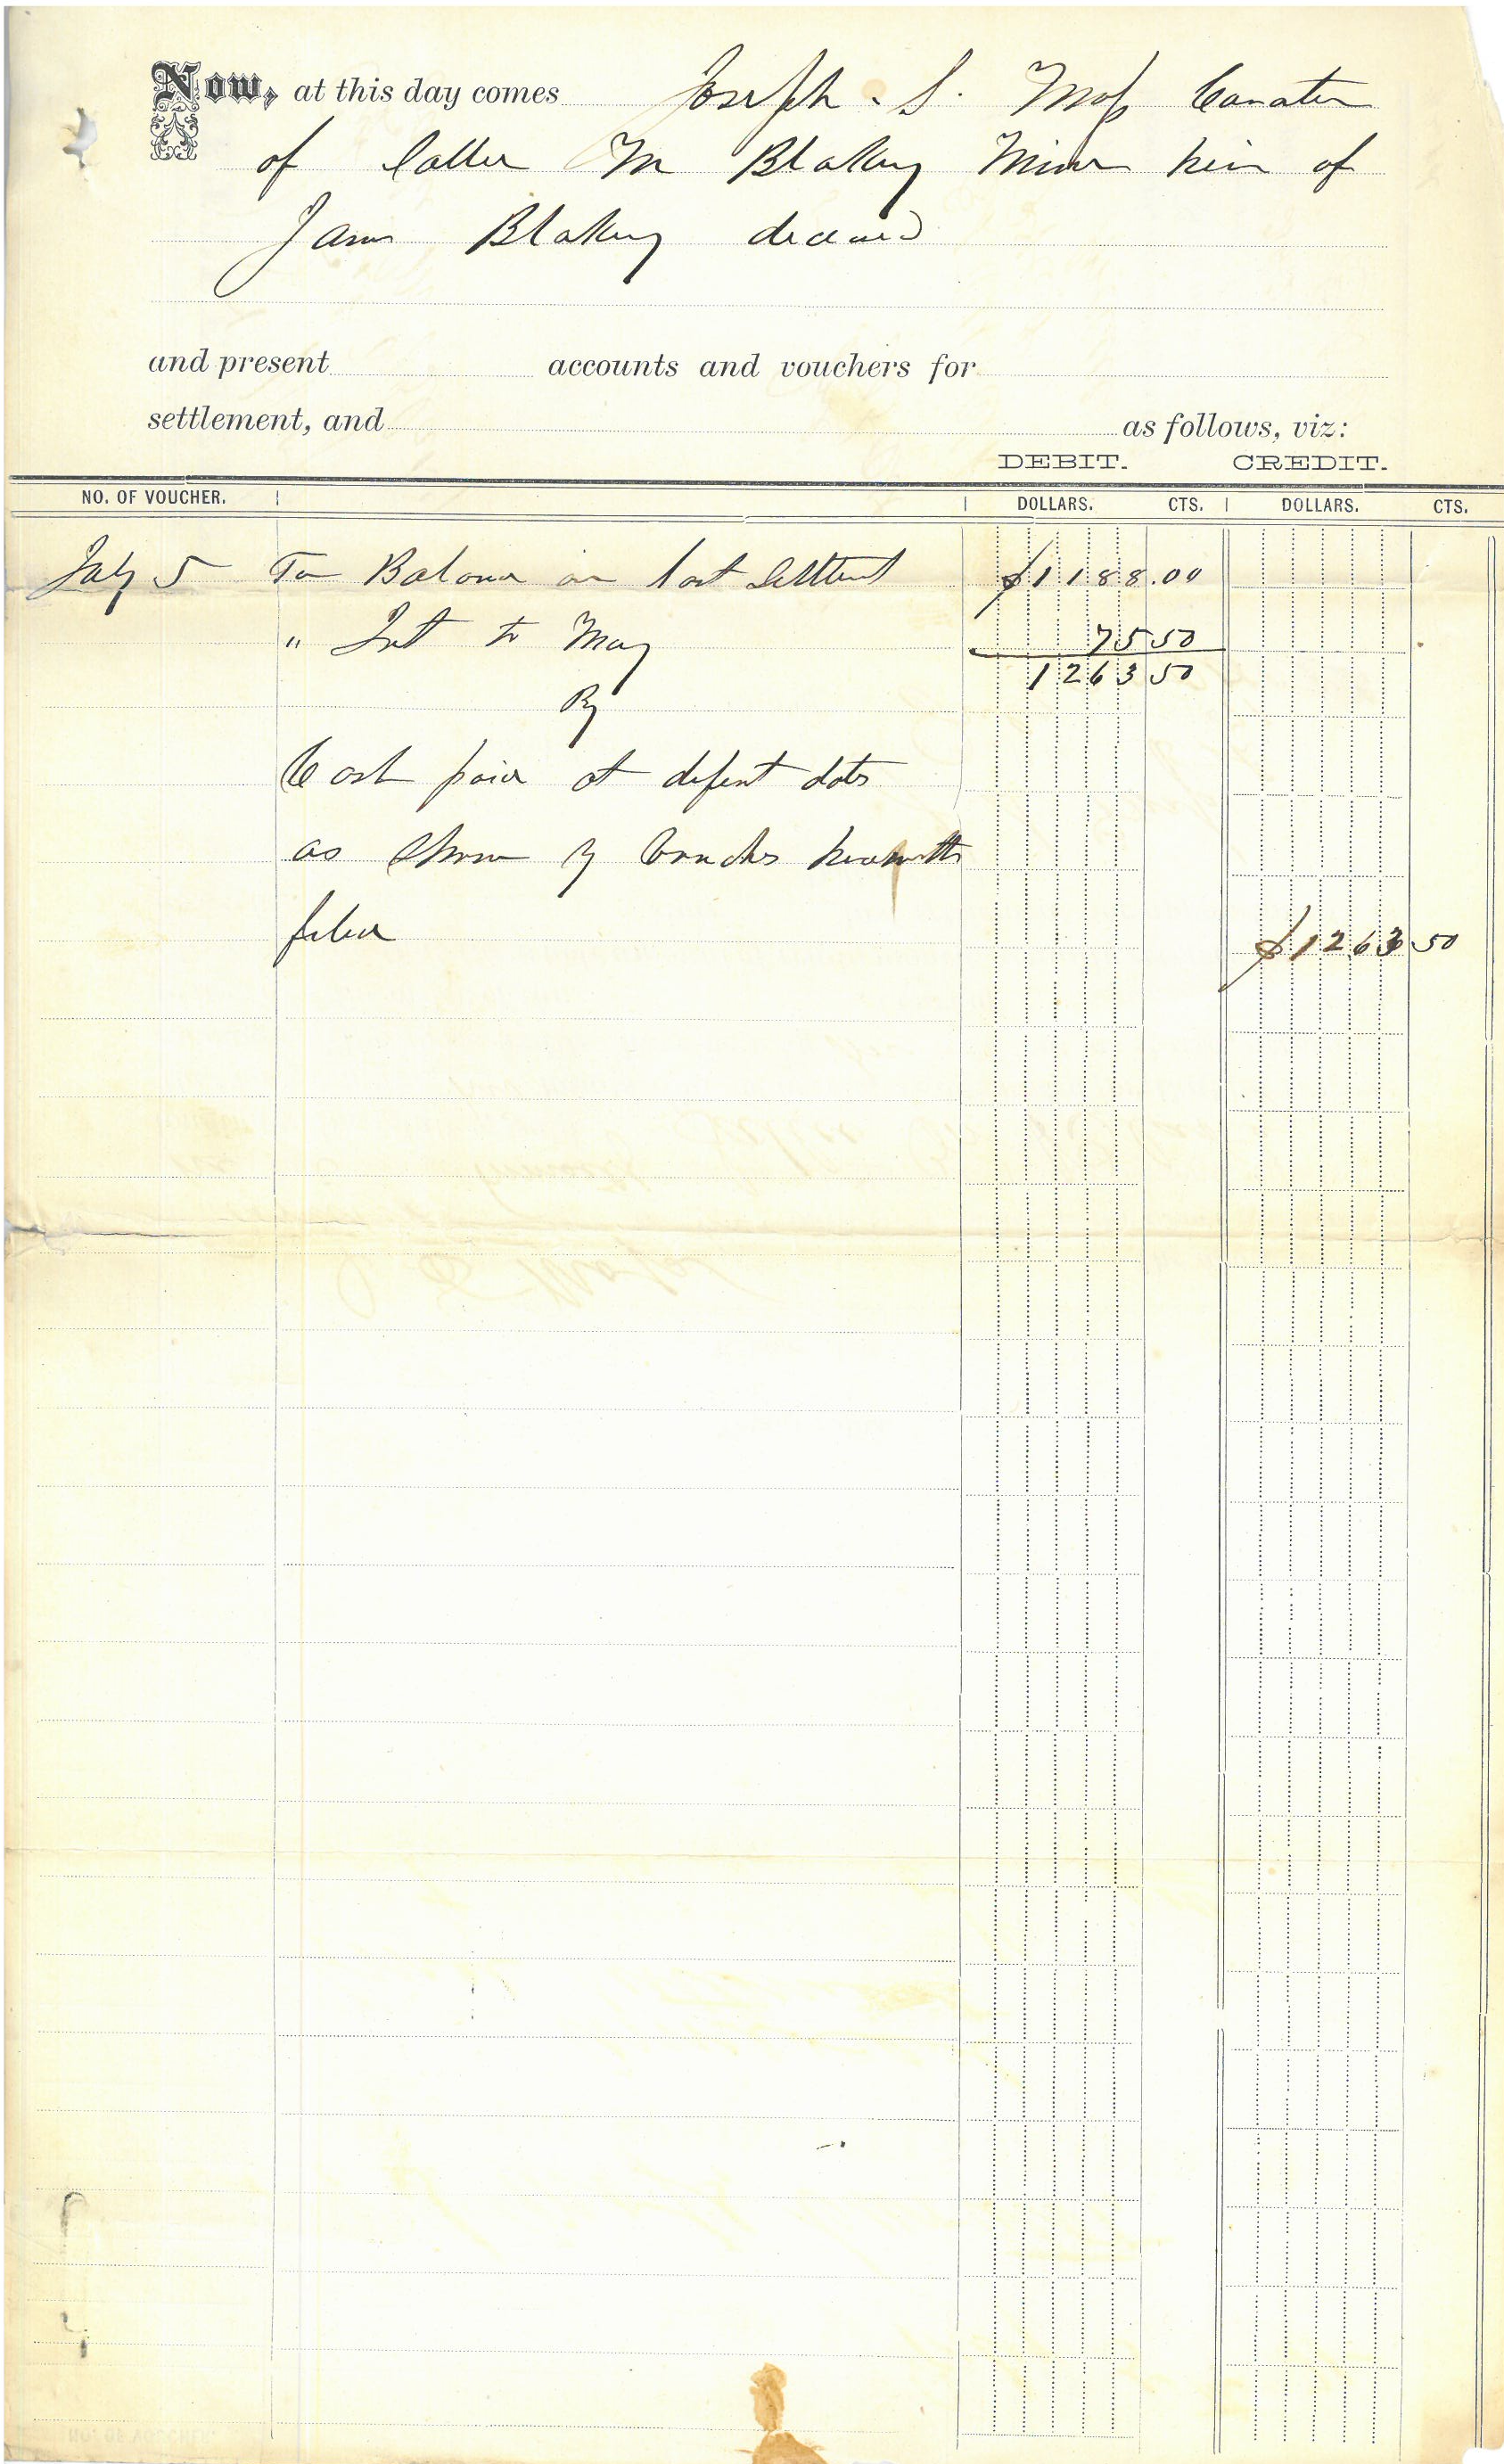 Now, at this day comes Joseph S. Moss Curator
of Callie M Blakey Minor heir of
James Blakey deceased
and present accounts and vouchers for
settlement, and as follows, viz:
DEBIT. CREDIT.
NO. OF VOUCHER. DOLLARS. CTS. DOLLARS. CTS.
July 5 To Balance on last Settlement $1188.00
" Int to May 75 50
1263 50
By
Cash paid at different dates
as shown by Vouchers herewith
filed $1263 50